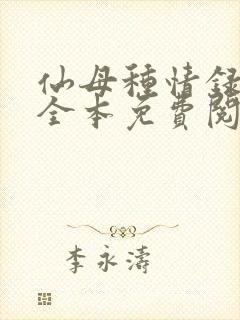 仙母種情録
全本免費閱
李永濤